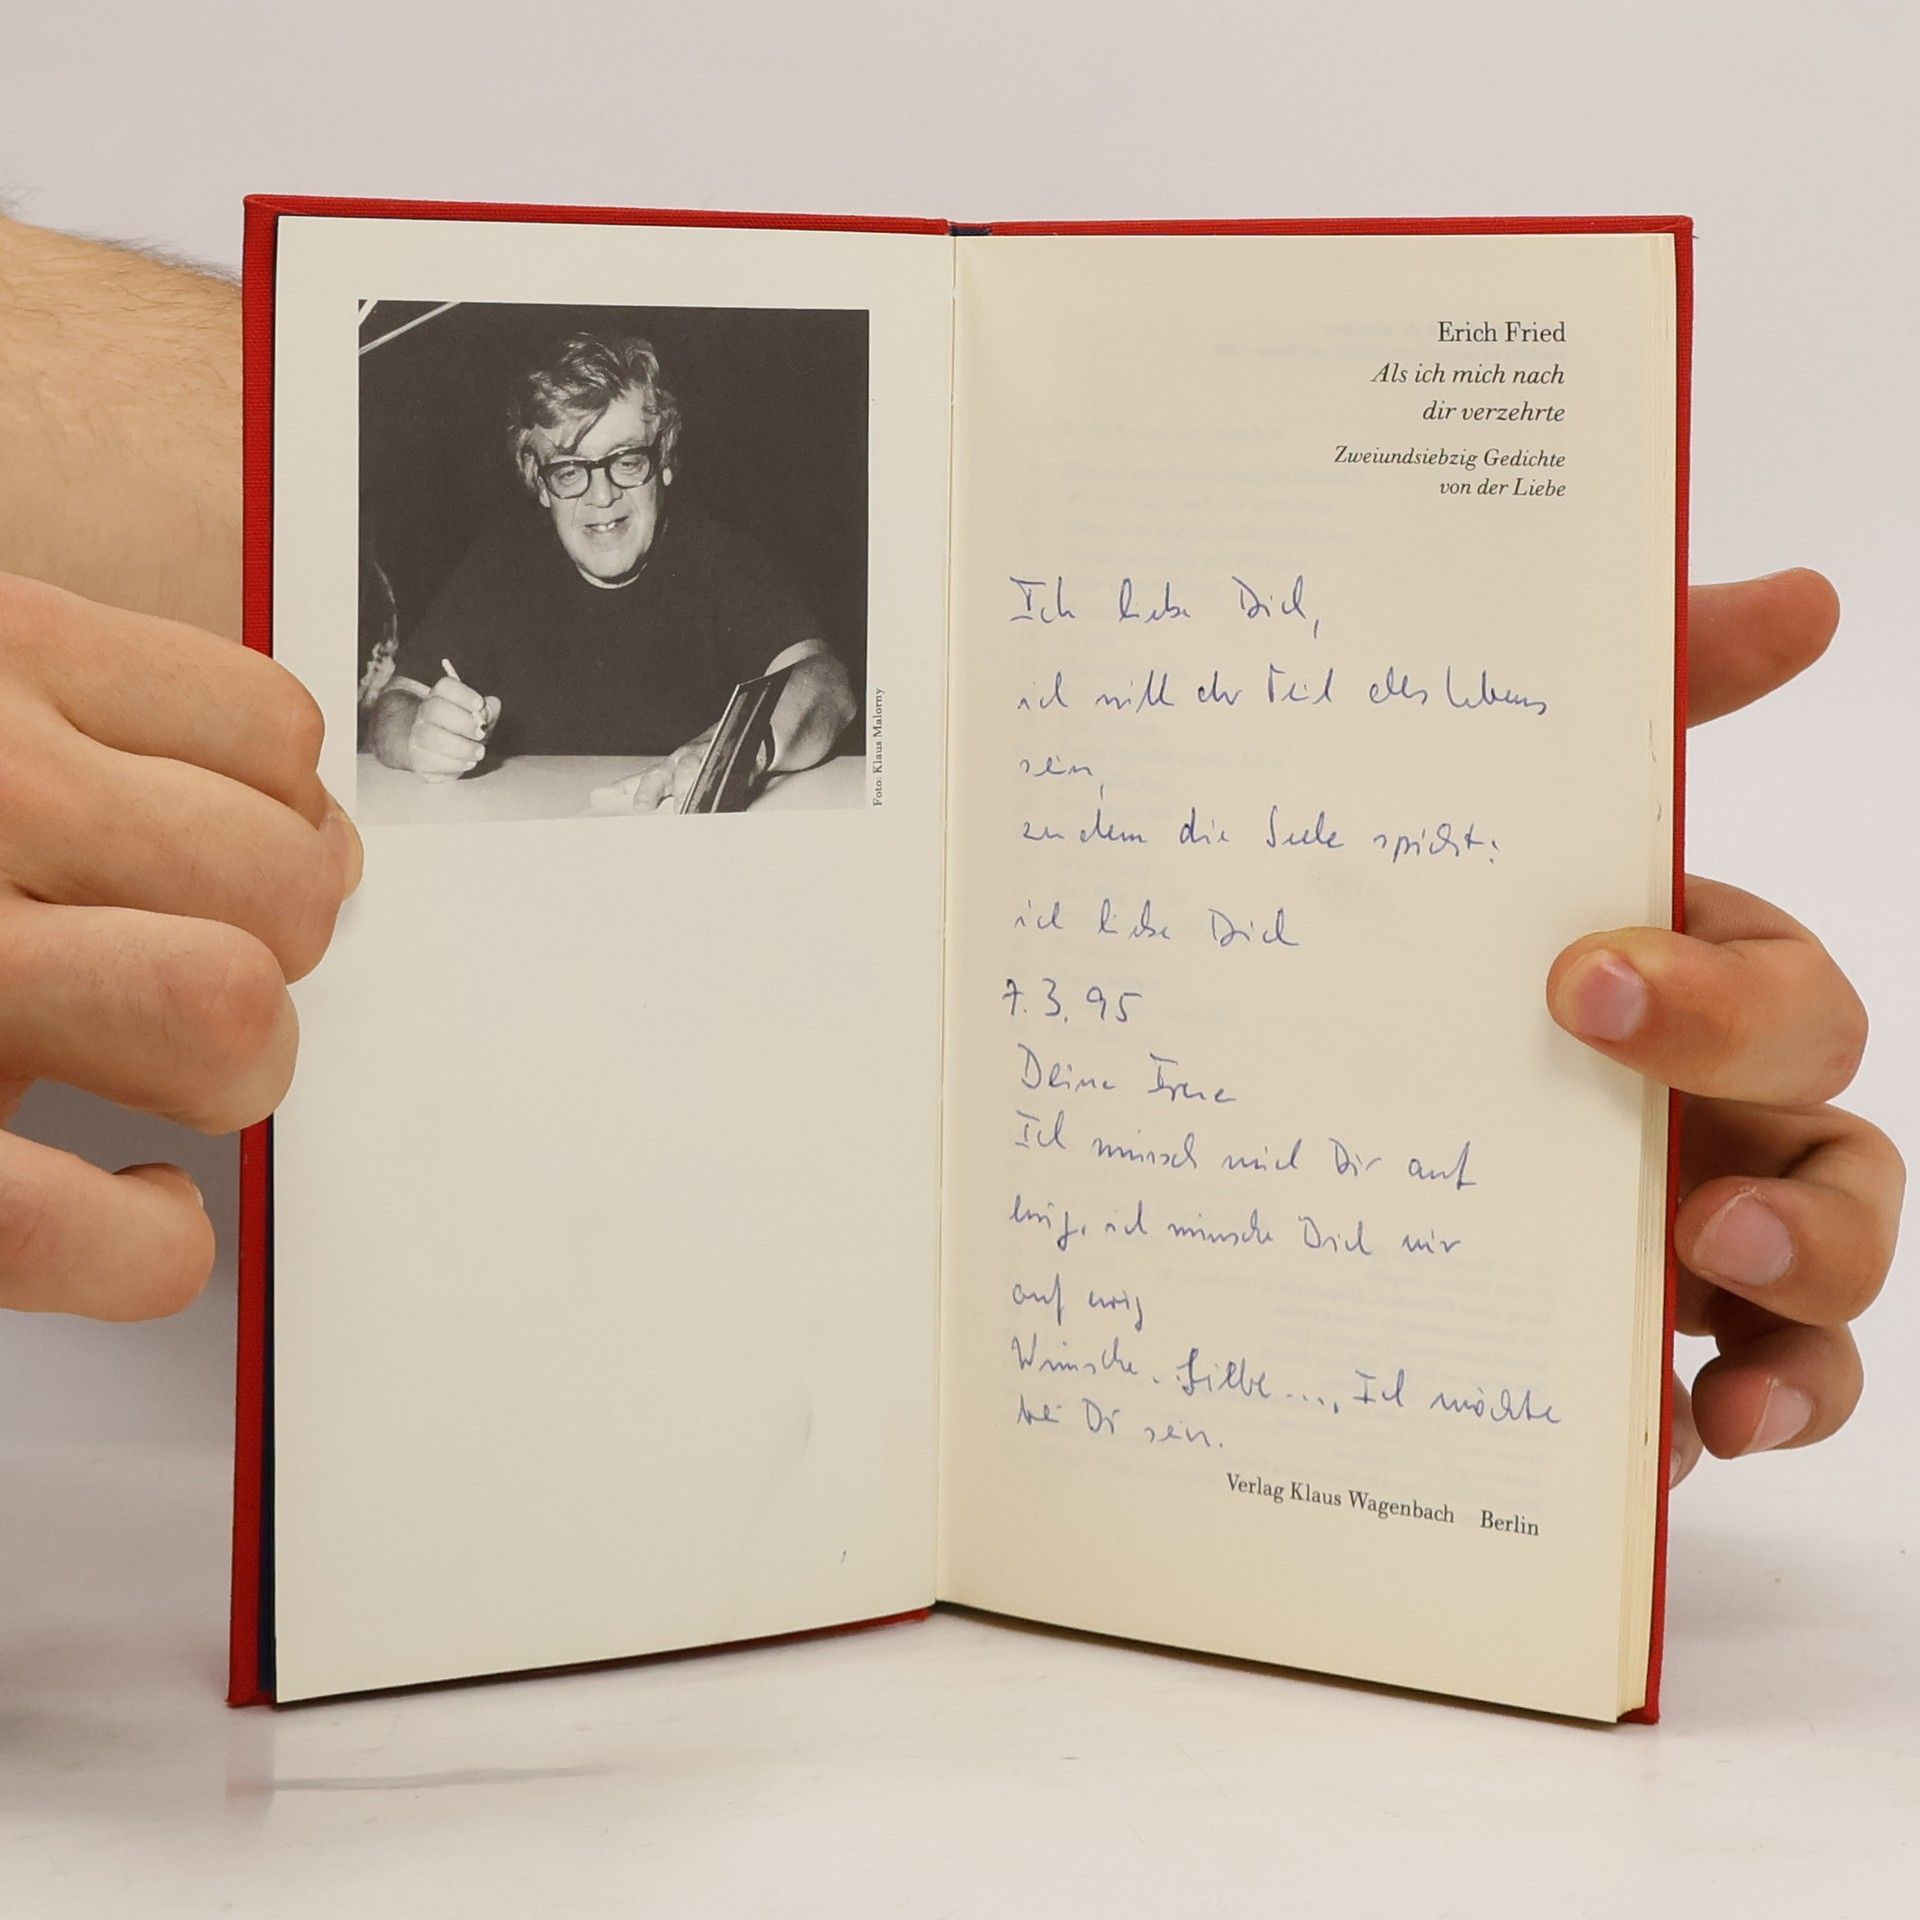 Foto: Klaus Malorny
Erich Fried
Als ich mich nach
dir verzehrte
Zweiundsiebzig Gedichte
von der Liebe
Ich liebe Dich,
ich will der Teil des Lebens
sein,
zu dem die Seele spricht:
ich liebe Dich
7.3.95
Deine Irene
Ich wünsch mich Dir auf
ewig, ich wünsche Dich mir
auf ewig
Wünsche. ..., Ich möchte
bei Dir sein.
Verlag Klaus Wagenbach Berlin